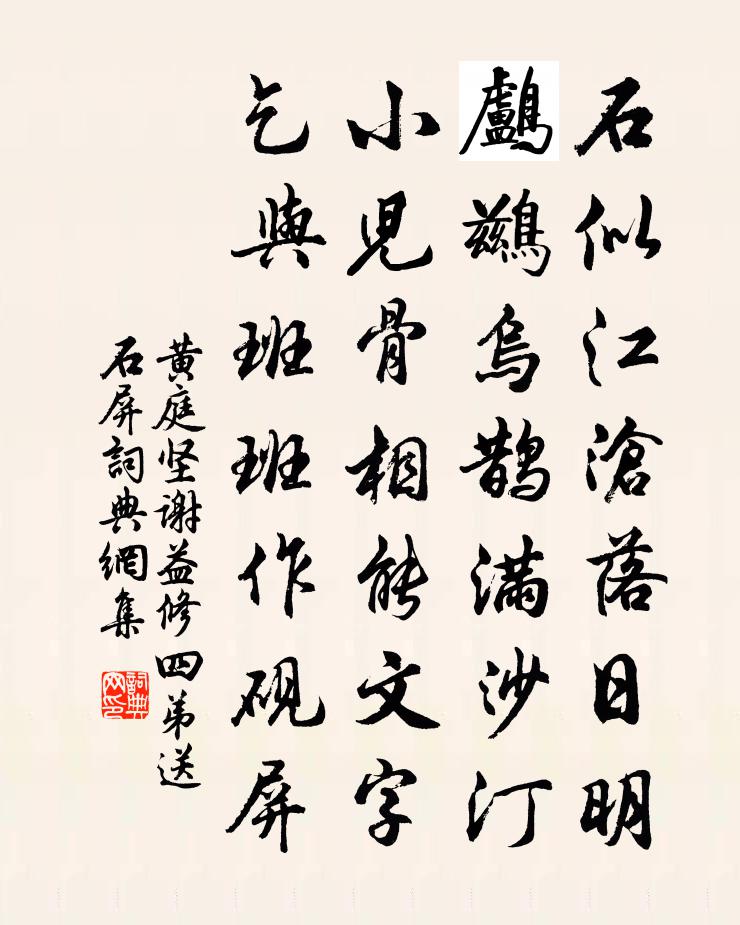 石似江滄落日明
鸕鷀烏鵲滿沙汀
小兒骨相能文字
乞與班班作硯屏
黄庭坚谢益修四弟送
石屏詞典網集
詞典网印